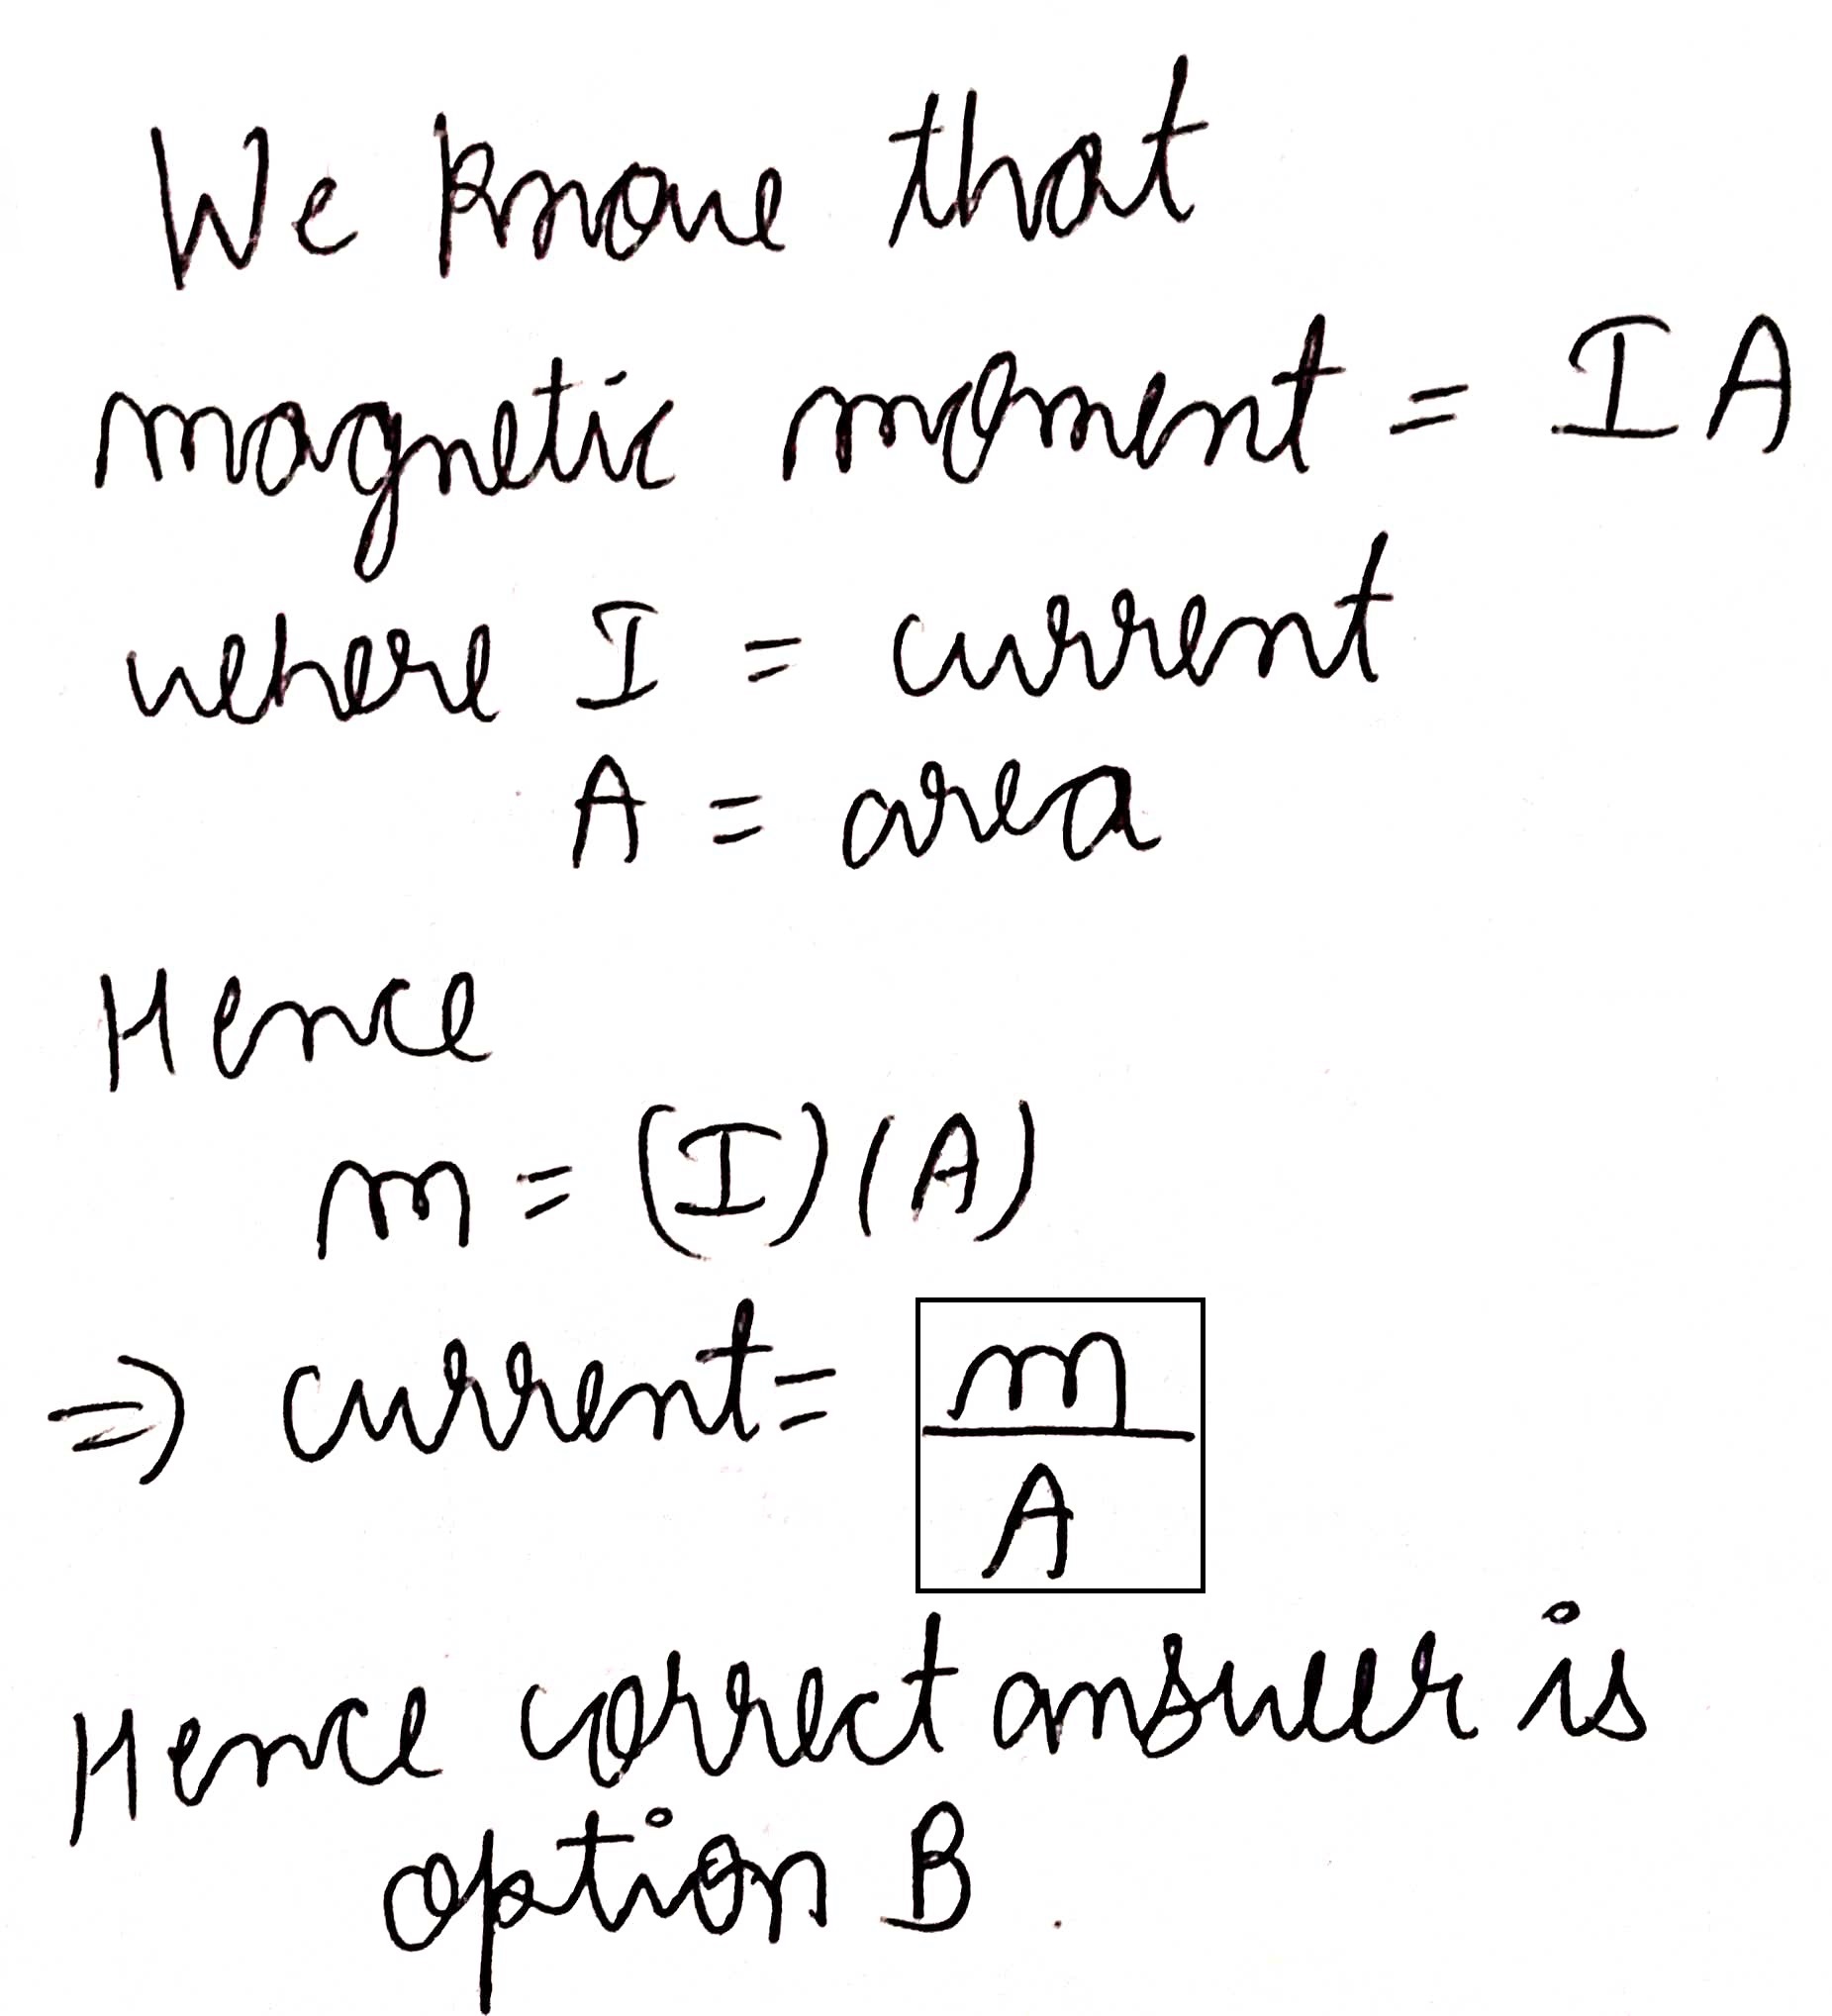 We know that
magnetic moment = I A
where I = current
A = area
Hence
m = (I)(A)
⇒ current = m/A
Hence correct answer is
option B.